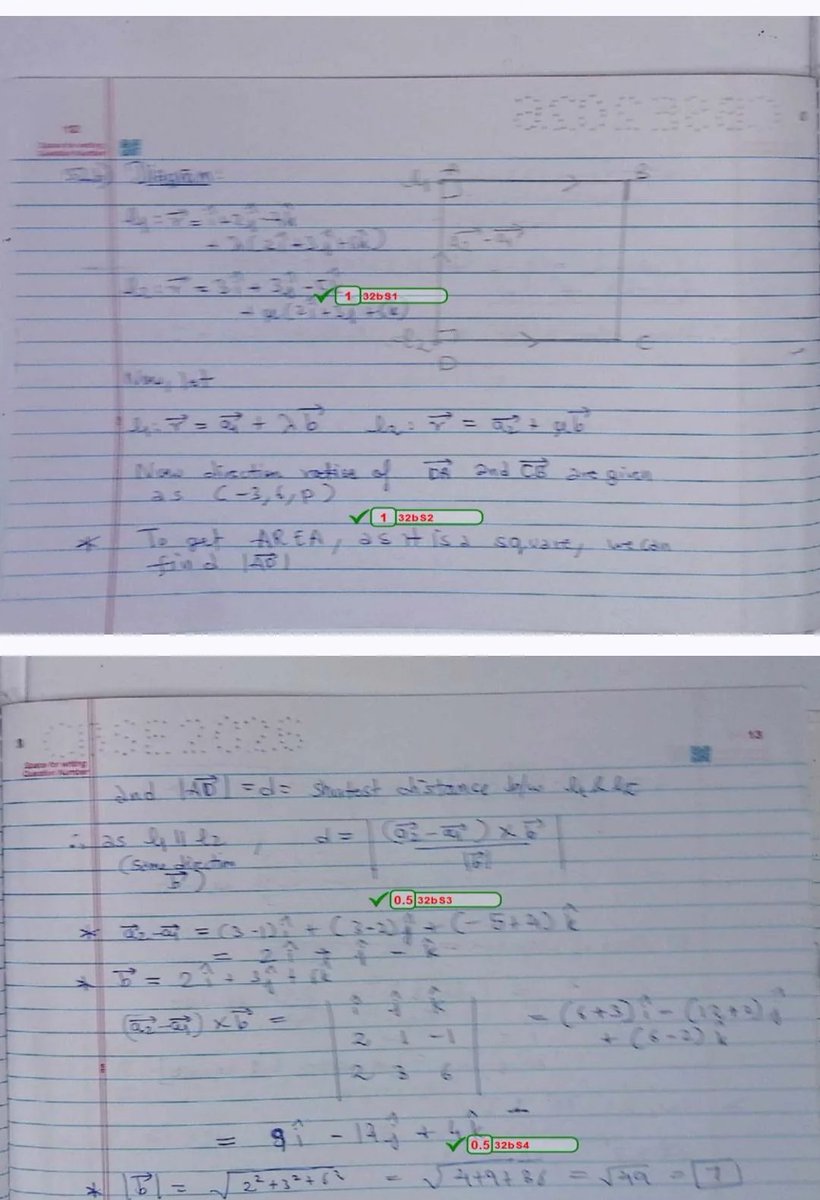 132
Space for writing
Question Number
Diagram:
l₁ = r⃗ = î + 2ĵ - 4k̂
+ λ(2î + 3ĵ + 6k̂)
B
a₂⃗ - a₁⃗
l₂ = r⃗ = 3î + 3ĵ - 5k̂
1 32bS1
+ μ(2î + 3ĵ + 6k̂)
l₂
D
C
Now, let
l₁ = r⃗ = a₁⃗ + λb⃗ l₂ : r⃗ = a₂⃗ + μb⃗
Now direction ratios of DA and CB are given
as (-3, 6, p)
1 32bS2
* To get AREA, as it is a square, we can
find |AD|
CBSE 2026
13
Space for writing
Question Number
and |AD| = d = shortest distance b/w l₁ & l₂
∴ as l₁ || l₂, d = | (a₂⃗ - a₁⃗) × b⃗ / |b⃗| |
(same direction
b⃗)
0.5 32bS3
* a₂⃗ - a₁⃗ = (3-1)î + (3-2)ĵ + (-5+4)k̂
= 2î + ĵ - k̂
* b⃗ = 2î + 3ĵ + 6k̂
(a₂⃗ - a₁⃗) × b⃗ = | î ĵ k̂ | = (6+3)î - (12+2)ĵ
| 2 1 -1 | + (6-2)k̂
| 2 3 6 |
= 9î - 14ĵ + 4k̂
0.5 32bS4
* |b⃗| = √2²+3²+6² = √4+9+36 = √49 = 7